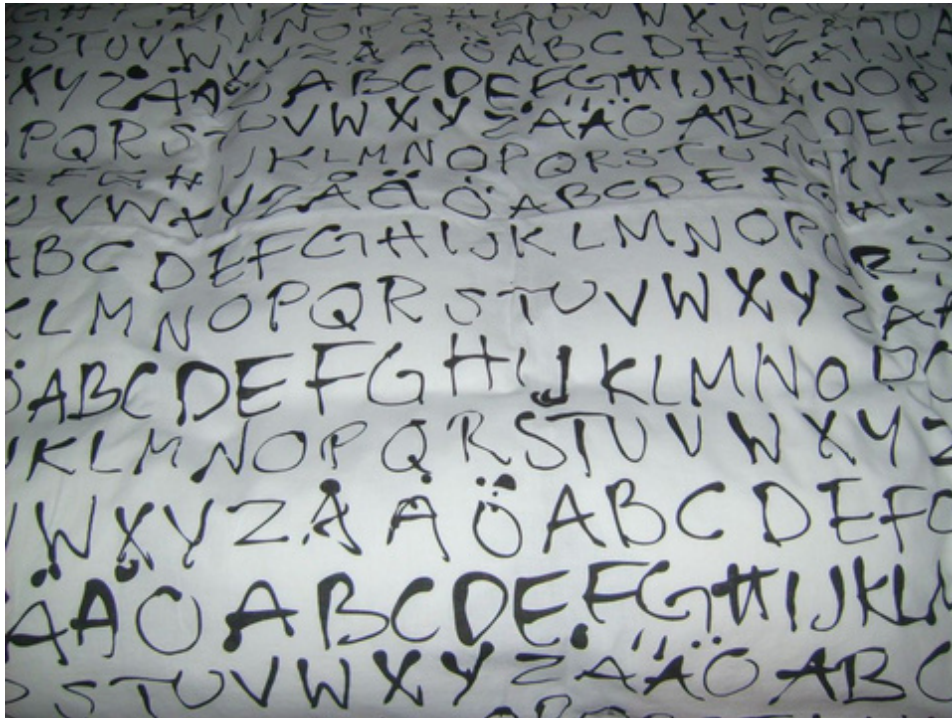 S T U V W X Y Z Å Ä Ö A B C D E F
X Y Z Å Ä Ö A B C D E F G H I J K L M N O P
P Q R S T U V W X Y Z Å Ä Ö A B C D E F G
E F G H I J K L M N O P Q R S T U V W X Y Z
U V W X Y Z Å Ä Ö A B C D E F G H I J
A B C D E F G H I J K L M N O P Q R S
K L M N O P Q R S T U V W X Y Z Å Ä
Ö A B C D E F G H I J K L M N O P Q
J K L M N O P Q R S T U V W X Y Z
V W X Y Z Å Ä Ö A B C D E F G
Å Ä Ö A B C D E F G H I J K L M
R S T U V W X Y Z Å Ä Ö A B C